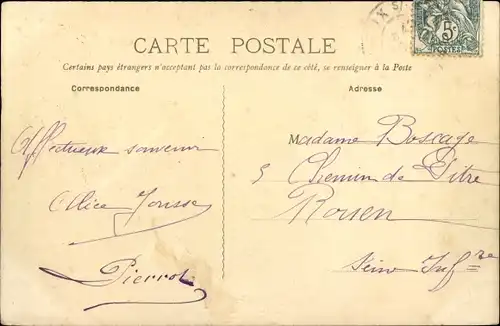 CARTE POSTALE
Certains pays étrangers n'acceptant pas la correspondance de ce côté, se renseigner à la Poste
Correspondance
Adresse
5c
POSTES
Affectueux souvenir
Alice Jousse
Pierrot
Madame Boscage
5 Chemin de Vitre
Rouen
Seine Inf.re